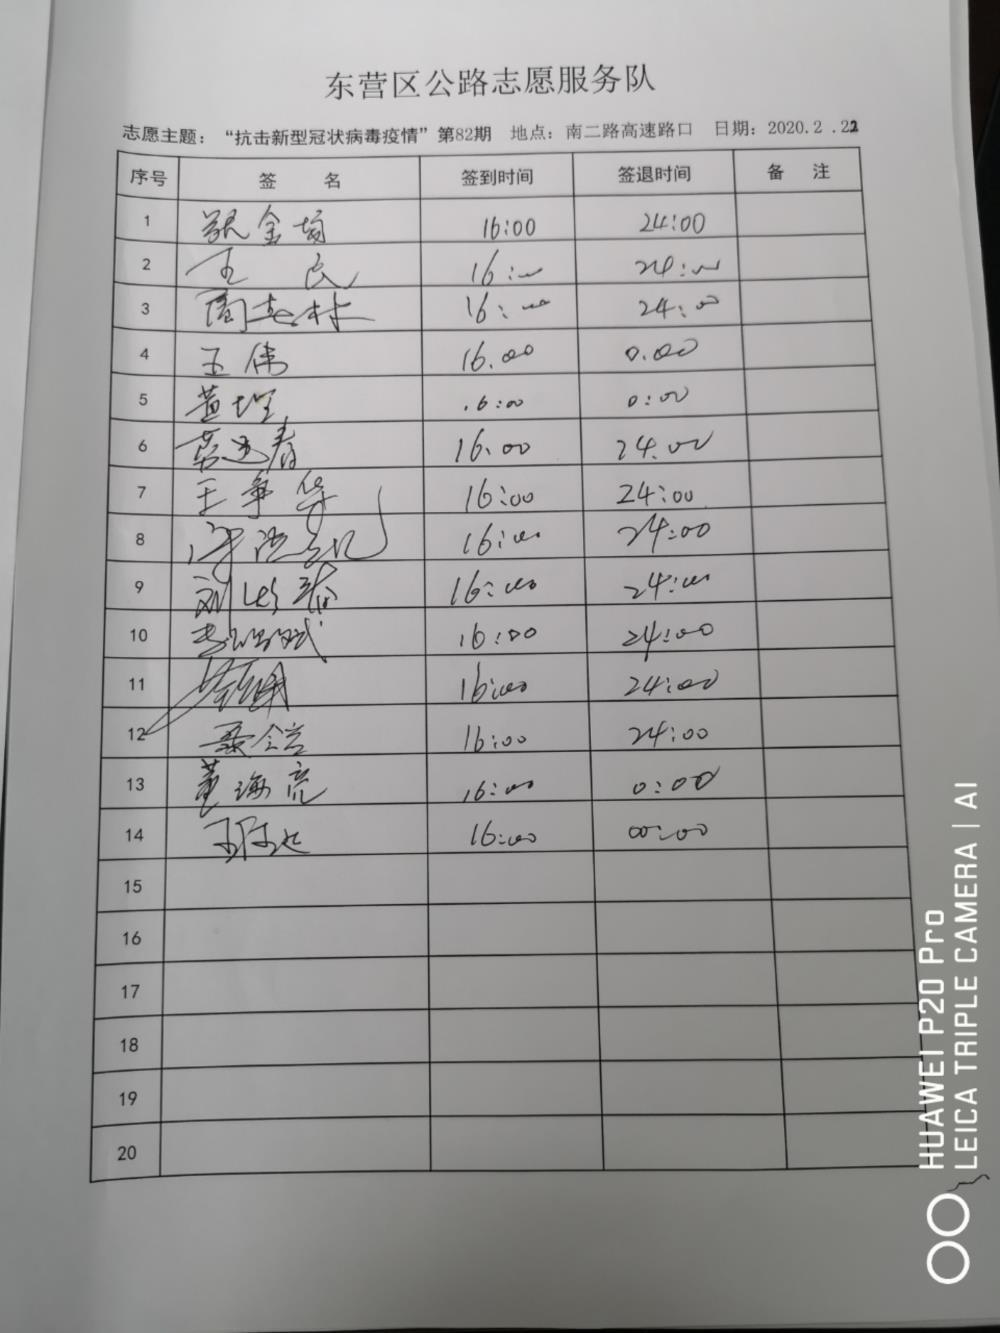 东营区公路志愿服务队
志愿主题：“抗击新型冠状病毒疫情”第82期 地点：南二路高速路口 日期：2020.2.22
序号 签 名 签到时间 签退时间 备 注
1 金 16:00 24:00
2 王民 16:00 24:00
3 周 林 16:00 24:00
4 王伟 16.00 0.00
5 黄 16:00 0:00
6 春 16:00 24:00
7 王争华 16:00 24:00
8 16:00 24:00
9 刘 16:00 24:00
10 李 斌 16:00 24:00
11 16:00 24:00
12 16:00 24:00
13 董海亮 16:00 0:00
14 王 16:00 00:00
15
16
17
18
19
20
HUAWEI P20 Pro
LEICA TRIPLE CAMERA | AI